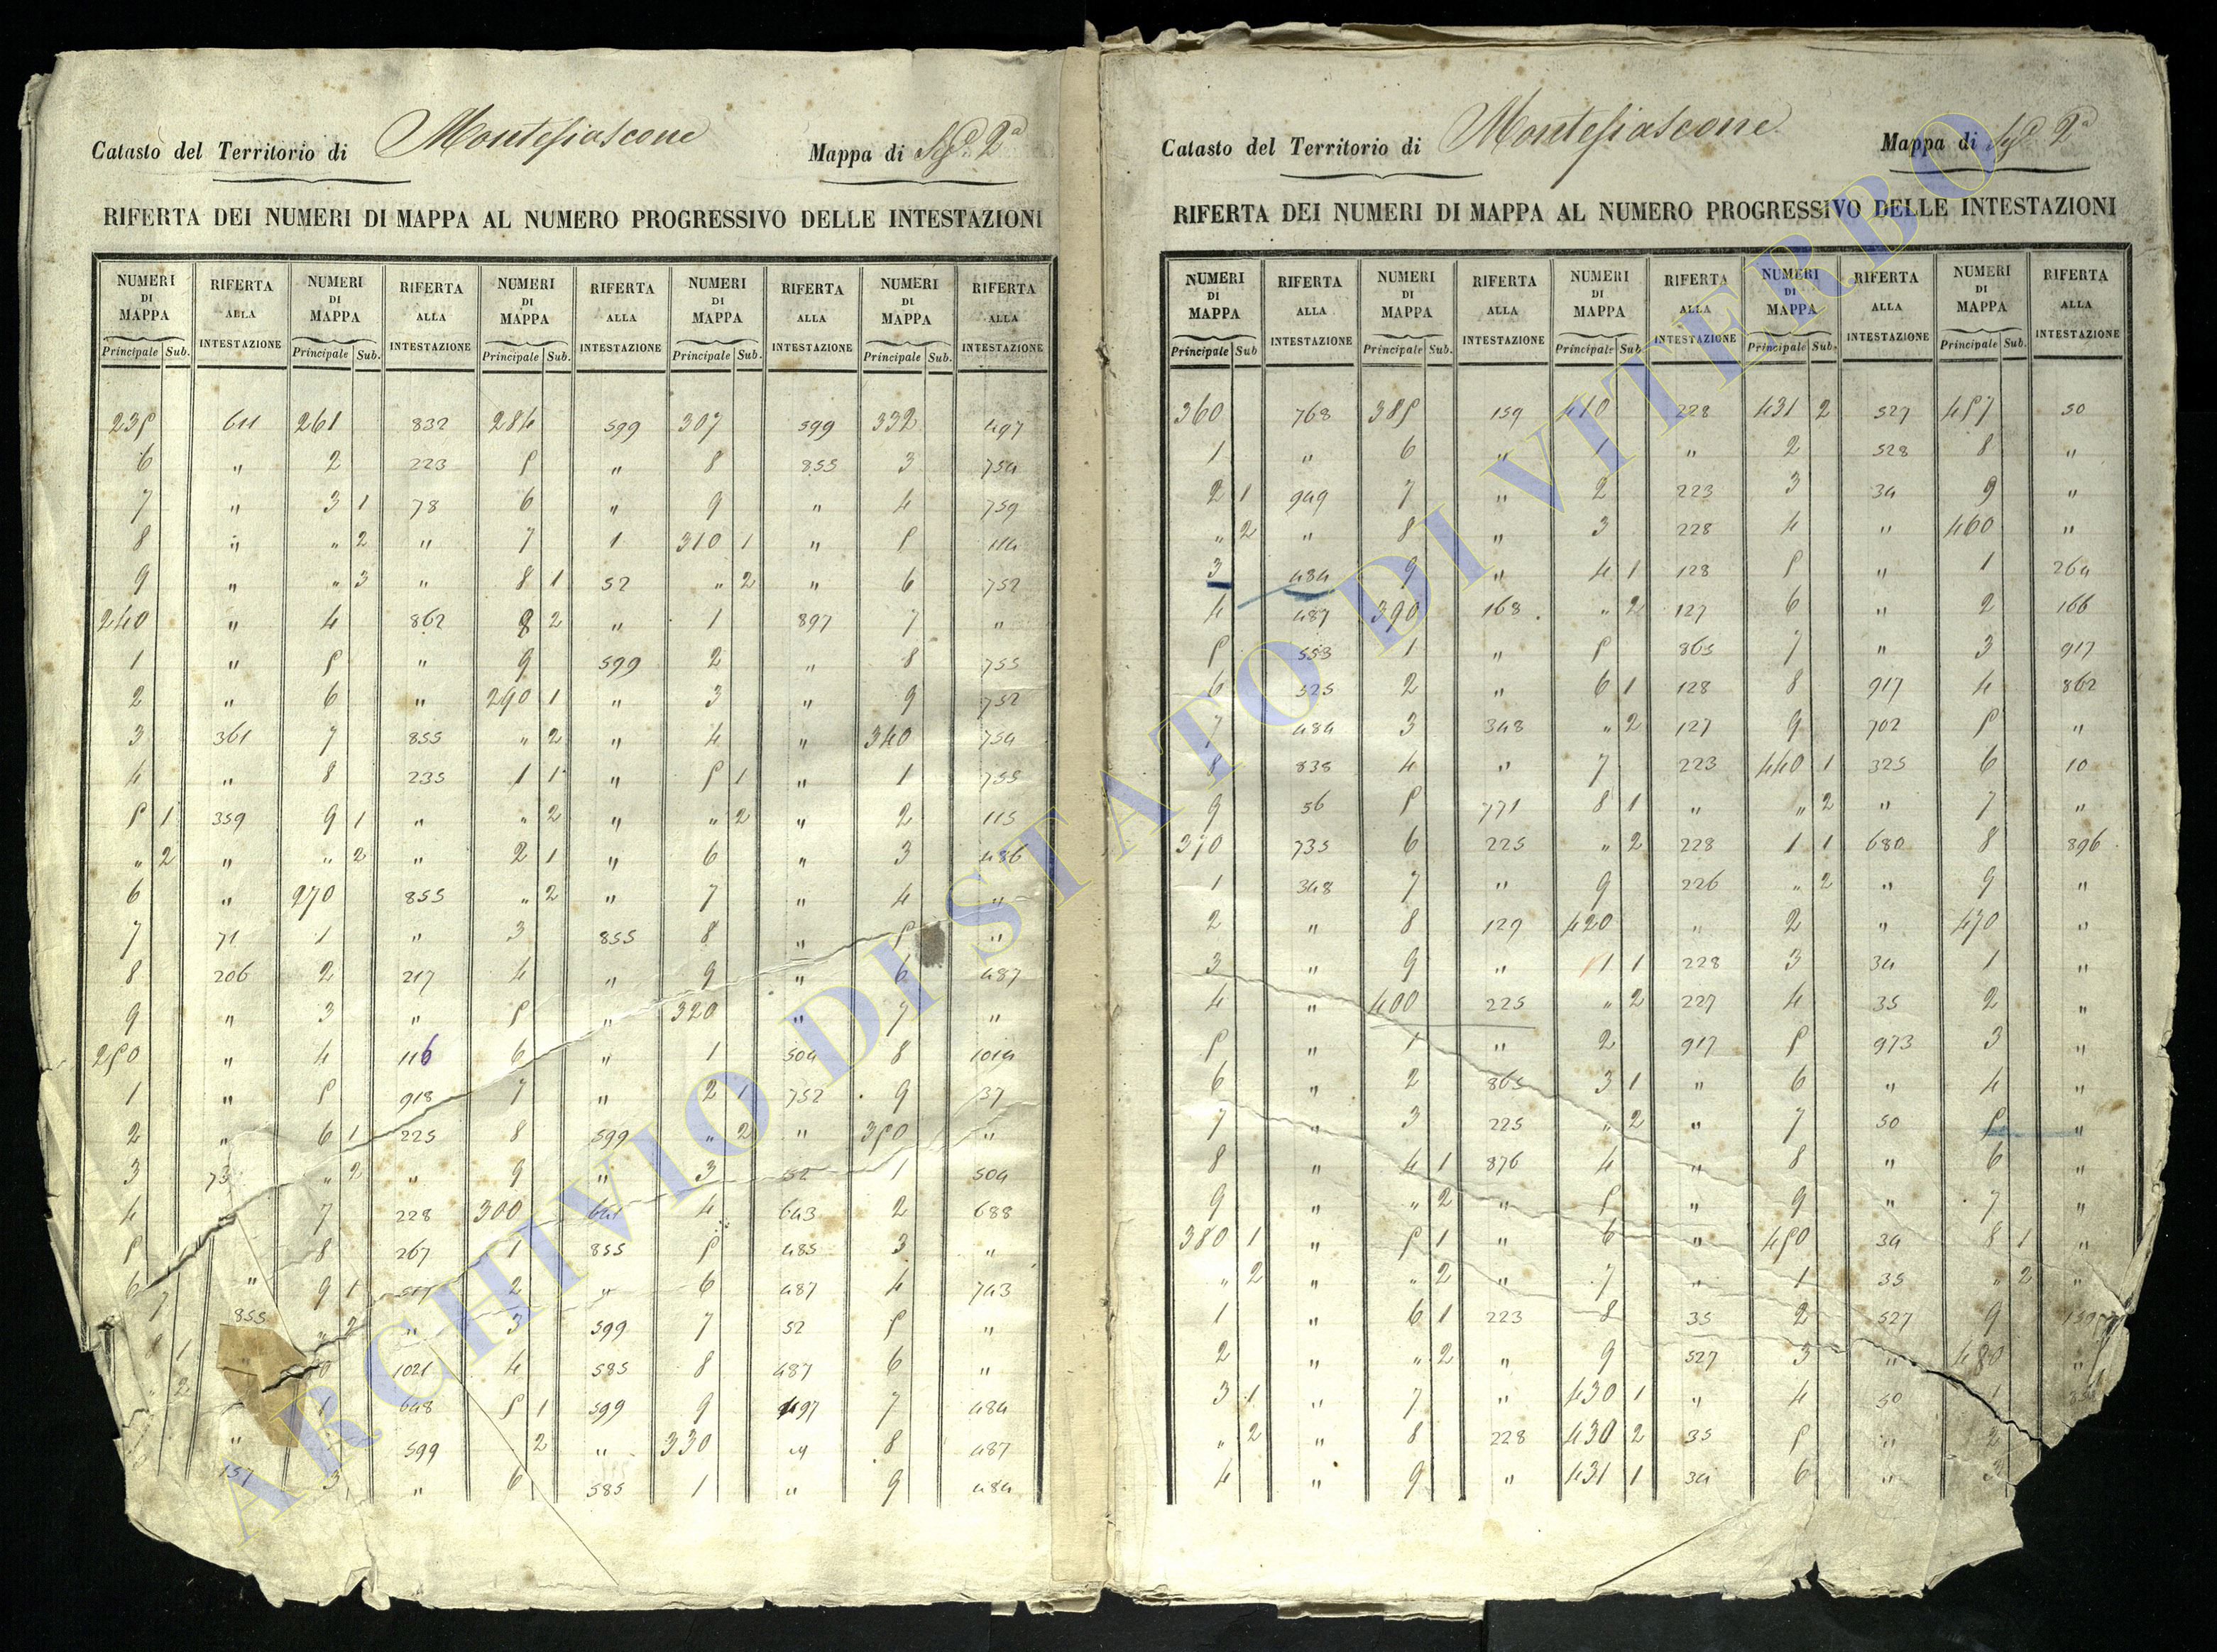 Catasto del Territorio di Montefiascone Mappa di Sez. 2ª
RIFERTA DEI NUMERI DI MAPPA AL NUMERO PROGRESSIVO DELLE INTESTAZIONI
NUMERI DI MAPPA RIFERTA ALLA INTESTAZIONE NUMERI DI MAPPA RIFERTA ALLA INTESTAZIONE NUMERI DI MAPPA RIFERTA ALLA INTESTAZIONE NUMERI DI MAPPA RIFERTA ALLA INTESTAZIONE NUMERI DI MAPPA RIFERTA ALLA INTESTAZIONE
Principale Sub. Principale Sub. Principale Sub. Principale Sub. Principale Sub.
235 611 261 832 284 599 307 599 332 497
6 " 2 223 5 " 8 855 3 754
7 " 3 1 78 6 " 9 " 4 759
8 " " 2 " 7 1 310 1 " 5 114
9 " " 3 " 8 1 52 " 2 " 6 752
240 " 4 862 8 2 " 1 897 7 "
1 " 5 " 9 599 2 " 8 755
2 " 6 " 290 1 " 3 " 9 752
3 361 7 855 " 2 " 4 " 340 754
4 " 8 235 1 1 " 5 1 " 1 755
5 1 359 9 1 " " 2 " " 2 " 2 115
" 2 " " 2 " 2 1 " 6 " 3 486
6 " 270 855 " 2 " 7 " 4 "
7 71 1 " 3 855 8 " 5 "
8 206 2 217 4 " 9 " 6 487
9 " 3 " 5 " 320 " 7 "
250 " 4 116 6 " 1 504 8 1014
1 " 5 918 7 " 2 1 752 9 37
2 " 6 1 225 8 599 " 2 " 350 "
3 73 " 2 " 9 " 3 52 1 504
4 7 228 300 641 4 643 2 688
5 8 267 1 855 5 485 3 "
6 " 9 1 2 " 6 487 4 743
7 855 " 2 " 3 599 7 52 5 "
8 1 " 1021 4 585 8 487 6 "
" 2 1 648 5 1 599 9 497 7 484
" 599 2 " 330 " 8 487
157 3 " 6 585 1 " 9 484
Catasto del Territorio di Montefiascone Mappa di Sez. 2ª
RIFERTA DEI NUMERI DI MAPPA AL NUMERO PROGRESSIVO DELLE INTESTAZIONI
NUMERI DI MAPPA RIFERTA ALLA INTESTAZIONE NUMERI DI MAPPA RIFERTA ALLA INTESTAZIONE NUMERI DI MAPPA RIFERTA ALLA INTESTAZIONE NUMERI DI MAPPA RIFERTA ALLA INTESTAZIONE NUMERI DI MAPPA RIFERTA ALLA INTESTAZIONE
Principale Sub Principale Sub. Principale Sub Principale Sub. Principale Sub.
360 768 385 159 410 228 431 2 527 457 50
1 " 6 " 1 " 2 528 8 "
2 1 949 7 " 2 223 3 34 9 "
" 2 " 8 " 3 228 4 " 460 "
3 484 9 " 4 1 128 5 " 1 264
4 487 390 168 " 2 127 6 " 2 166
5 553 1 " 5 865 7 " 3 917
6 525 2 " 6 1 128 8 917 4 862
7 484 3 348 " 2 127 9 702 5 "
8 835 4 " 7 223 440 1 325 6 10
9 56 5 771 8 1 " " 2 " 7 "
370 735 6 225 " 2 228 1 1 680 8 896
1 348 7 " 9 226 " 2 " 9 "
2 " 8 129 420 " 2 " 470 "
3 " 9 " 1 1 228 3 34 1 "
4 " 400 225 " 2 227 4 35 2 "
5 " 1 " 2 917 5 973 3 "
6 " 2 865 3 1 " 6 " 4 "
7 " 3 225 " 2 " 7 50 5 "
8 " 4 1 876 4 " 8 " 6 "
9 " " 2 " 5 " 9 " 7 "
380 1 " 5 1 " 6 " 450 34 8 1 "
" 2 " " 2 " 7 " 1 35 " 2 "
1 " 6 1 223 8 35 2 527 9
2 " " 2 " 9 527 3 " 480 "
3 1 " 7 " 430 1 " 4 50 1
" 2 " 8 228 430 2 35 5 " 2
4 " 9 " 431 1 34 6 " 3
ARCHIVIO DI STATO DI VITERBO